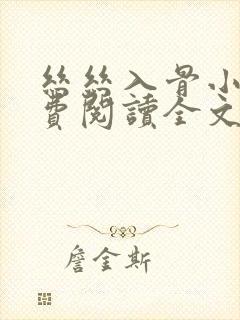 絲絲入骨小
費閱讀全文
詹金斯